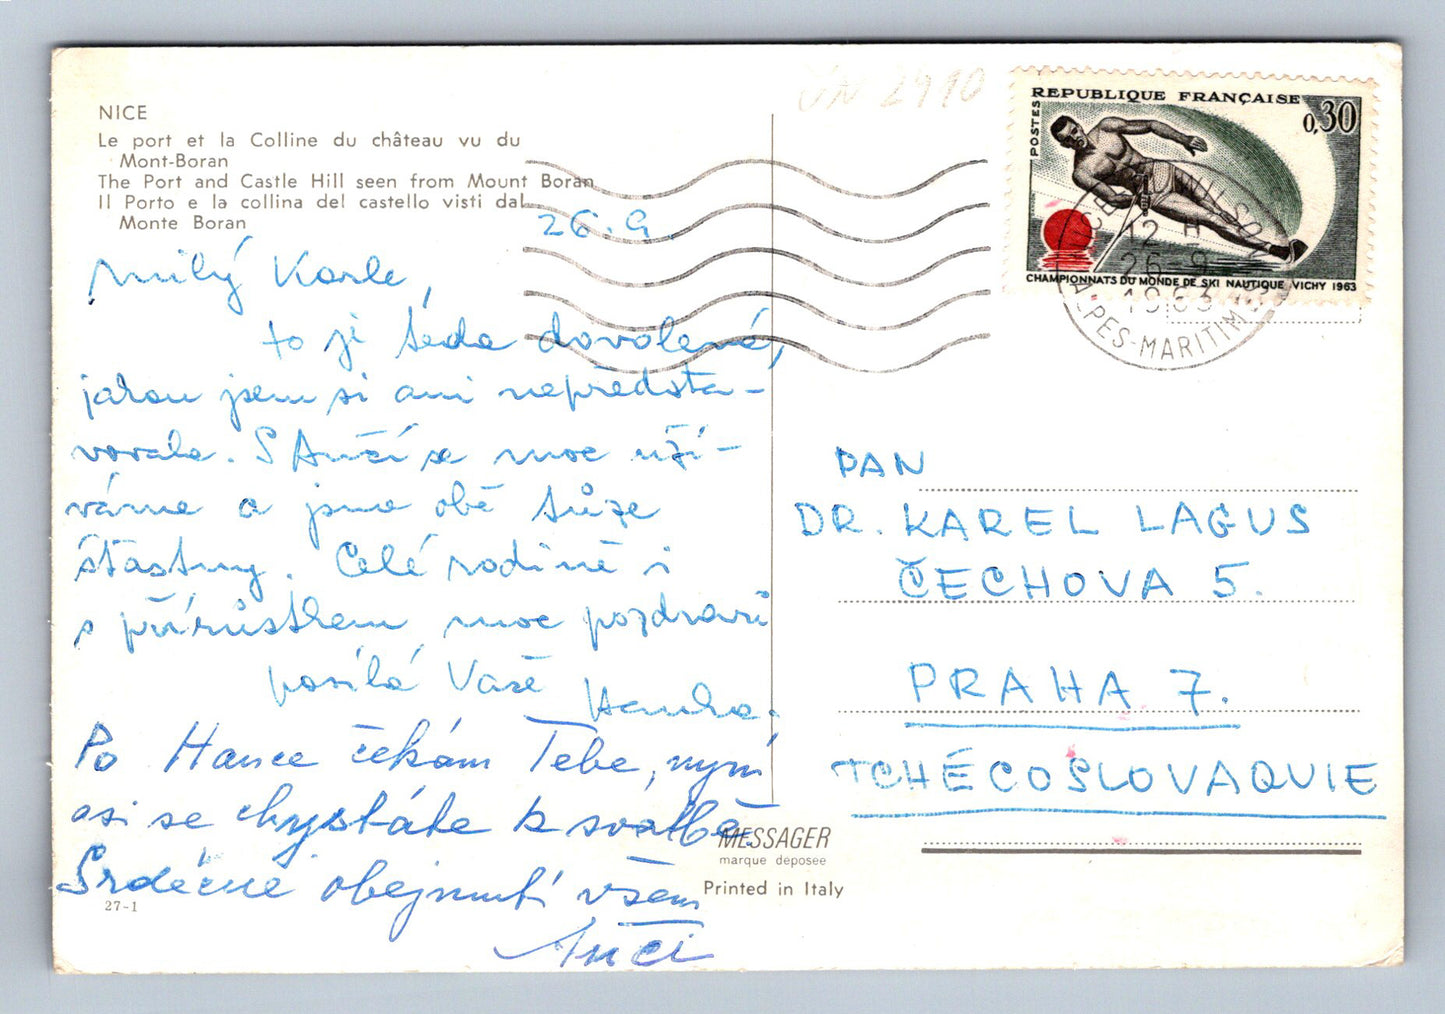 NICE
Le port et la Colline du château vu du
Mont-Boran
The Port and Castle Hill seen from Mount Boran
Il Porto e la collina del castello visti dal
Monte Boran
26.9.
Milý Karle,
to ji teda dovolená,
jakou jsem si ani nepředsta-
vovala. S Ančí se moc uží-
váme a jsme obě túze
šťastny. Celé rodině i
s přírůstkem moc pozdravů
posílá Vaše Hanka.
Po Hance čekám Tebe, nyní
asi se chystáte k svatbě.
Srdečné obejmutí všem
Anči
27-1
MESSAGER
marque déposée
Printed in Italy
UN 2910
REPUBLIQUE FRANÇAISE
POSTES
0,30
CHAMPIONNATS DU MONDE DE SKI NAUTIQUE VICHY 1963
NICE WILSON
12 H
26-9
1963
ALPES-MARITIMES
PAN
DR. KAREL LAGUS
ČECHOVA 5.
PRAHA 7.
TCHÉCOSLOVAQUIE